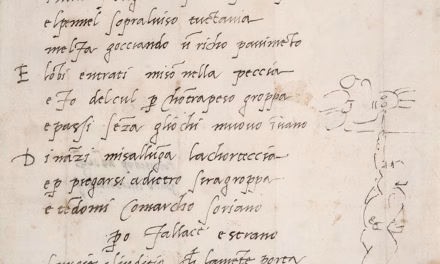 elpennel sopralviso tuctavia
melfa gocciando ũ richo pavimẽto
E lobi entrati misõ nella peccia
e fo delcul p chõtrapeso groppa
e passi sẽza gliochi muovo ĩvano
D inãzi misalluga lachorteccia
e p pregarsi adietro siragroppa
e tẽdomi comarcho soriano
po fallace e strano
lamẽte porta